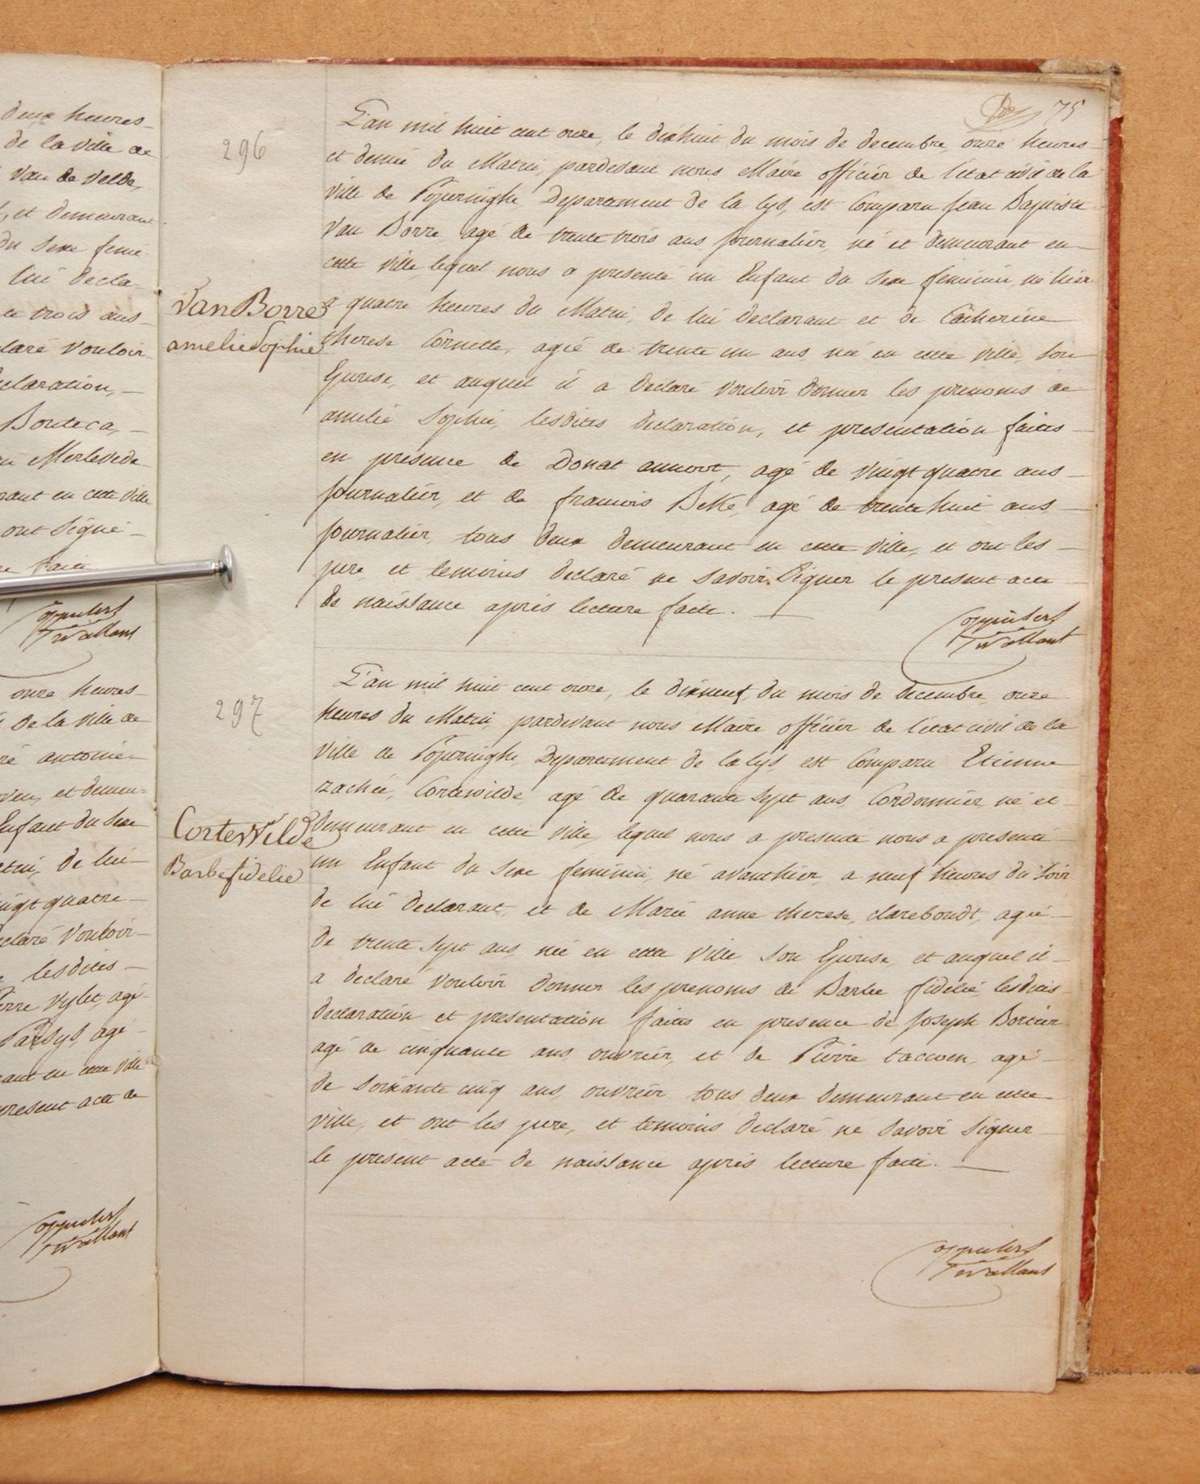 deux heures
de la ville de
Van de Velde,
, et demeurant
du sexe femi
lui decla-
trois ans
laré vouloir
claration,
Bouteca,
Merlevede
rant en cette ville
ont signé
faite
onze heures
de la ville de
ré antoine
et demeu-
Enfant du sexe
de lui
ingt quatre
claré vouloir
lesdites
Pierre Vylet, agé
Parsys, agé
rant en cette ville
present acte de
75
296
Van Borre
amelie Sophie
L'an mil huit cent onze, le dixhuit du mois de decembre, onze heures
et demie du Matin, pardevant nous Maire officier de l'etat civil de la
ville de Poperinghe Departement de la Lys, est Comparu Jean Baptiste
Van Borre agé de trente trois ans journalier, né et demeurant en
cette ville lequel nous a presenté un Enfant du Sexe feminin né hier
a quatre heures du Matin, de lui declarant et de Catherine
therese Cornette, agée de trente un ans née en cette ville, Son
Epouse, et auquel il a declaré vouloir donner les prenoms de
amelie Sophie, lesdites declaration, et presentation faites
en présence de Donat annoot, agé de vingt quatre ans
journalier, et de francois Bette, agé de trente huit ans
journalier, tous deux demeurant en cette ville, et ont les
pere et temoins declaré ne savoir Signer le present acte
de naissance après lecture faite.
297
Cortewilde
Barbe fidelie
L'an mil huit cent onze, le dixneuf du mois de decembre, onze
heures du Matin, pardevant nous Maire officier de l'etat civil de la
ville de Poperinghe, Departement de la Lys est Comparu Etienne
zachée, Cortewilde agé de quarante sept ans, Cordonnier né et
demeurant en cette ville, lequel nous a presenté nous a presenté
un Enfant du Sexe feminin, né avanthier, a neuf heures du soir
de lui declarant, et de Marie anne therese, clareboudt, agée
de trente Sept ans, née en cette ville Son Epouse, et auquel il
a declaré vouloir donner les prenoms de Barbe fidelie, lesdites
déclaration et presentation faites en presence de Joseph Bortier
agé de cinquante ans ouvrier, et de Pierre taccoen, agé
de soixante cinq ans, ouvrier tous deux demeurant en cette
ville, et ont les pere, et temoins declaré ne Savoir Signer
le present acte de naissance après lecture faite.